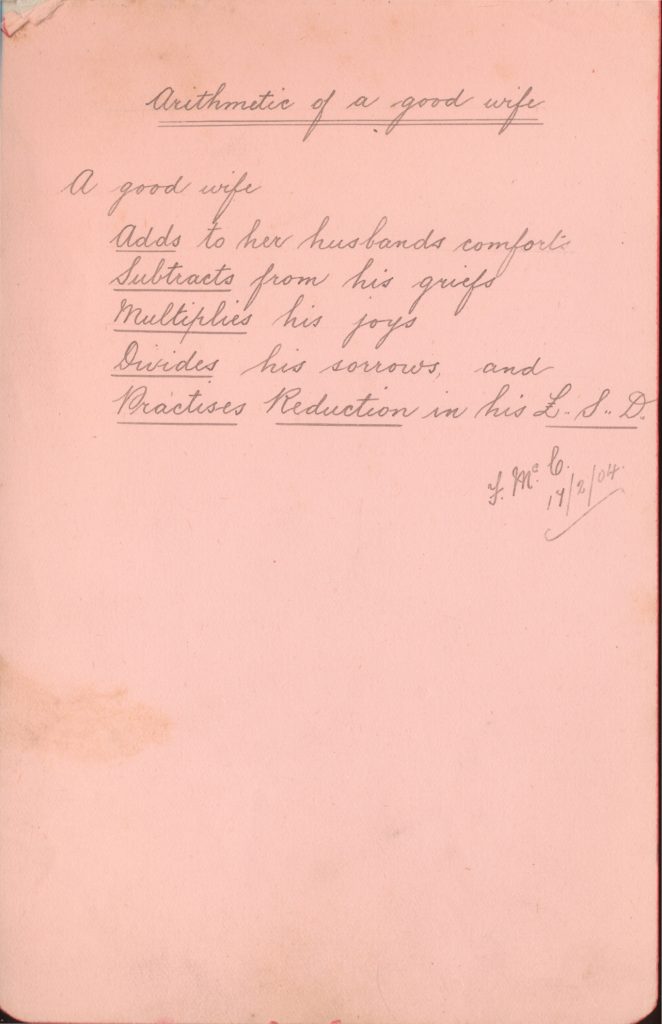 Arithmetic of a good wife
A good wife
Adds to her husbands comforts
Subtracts from his griefs
Multiplies his joys
Divides his sorrows, and
Practises Reduction in his £. S. D.
F. Mc. C.
17/2/04.